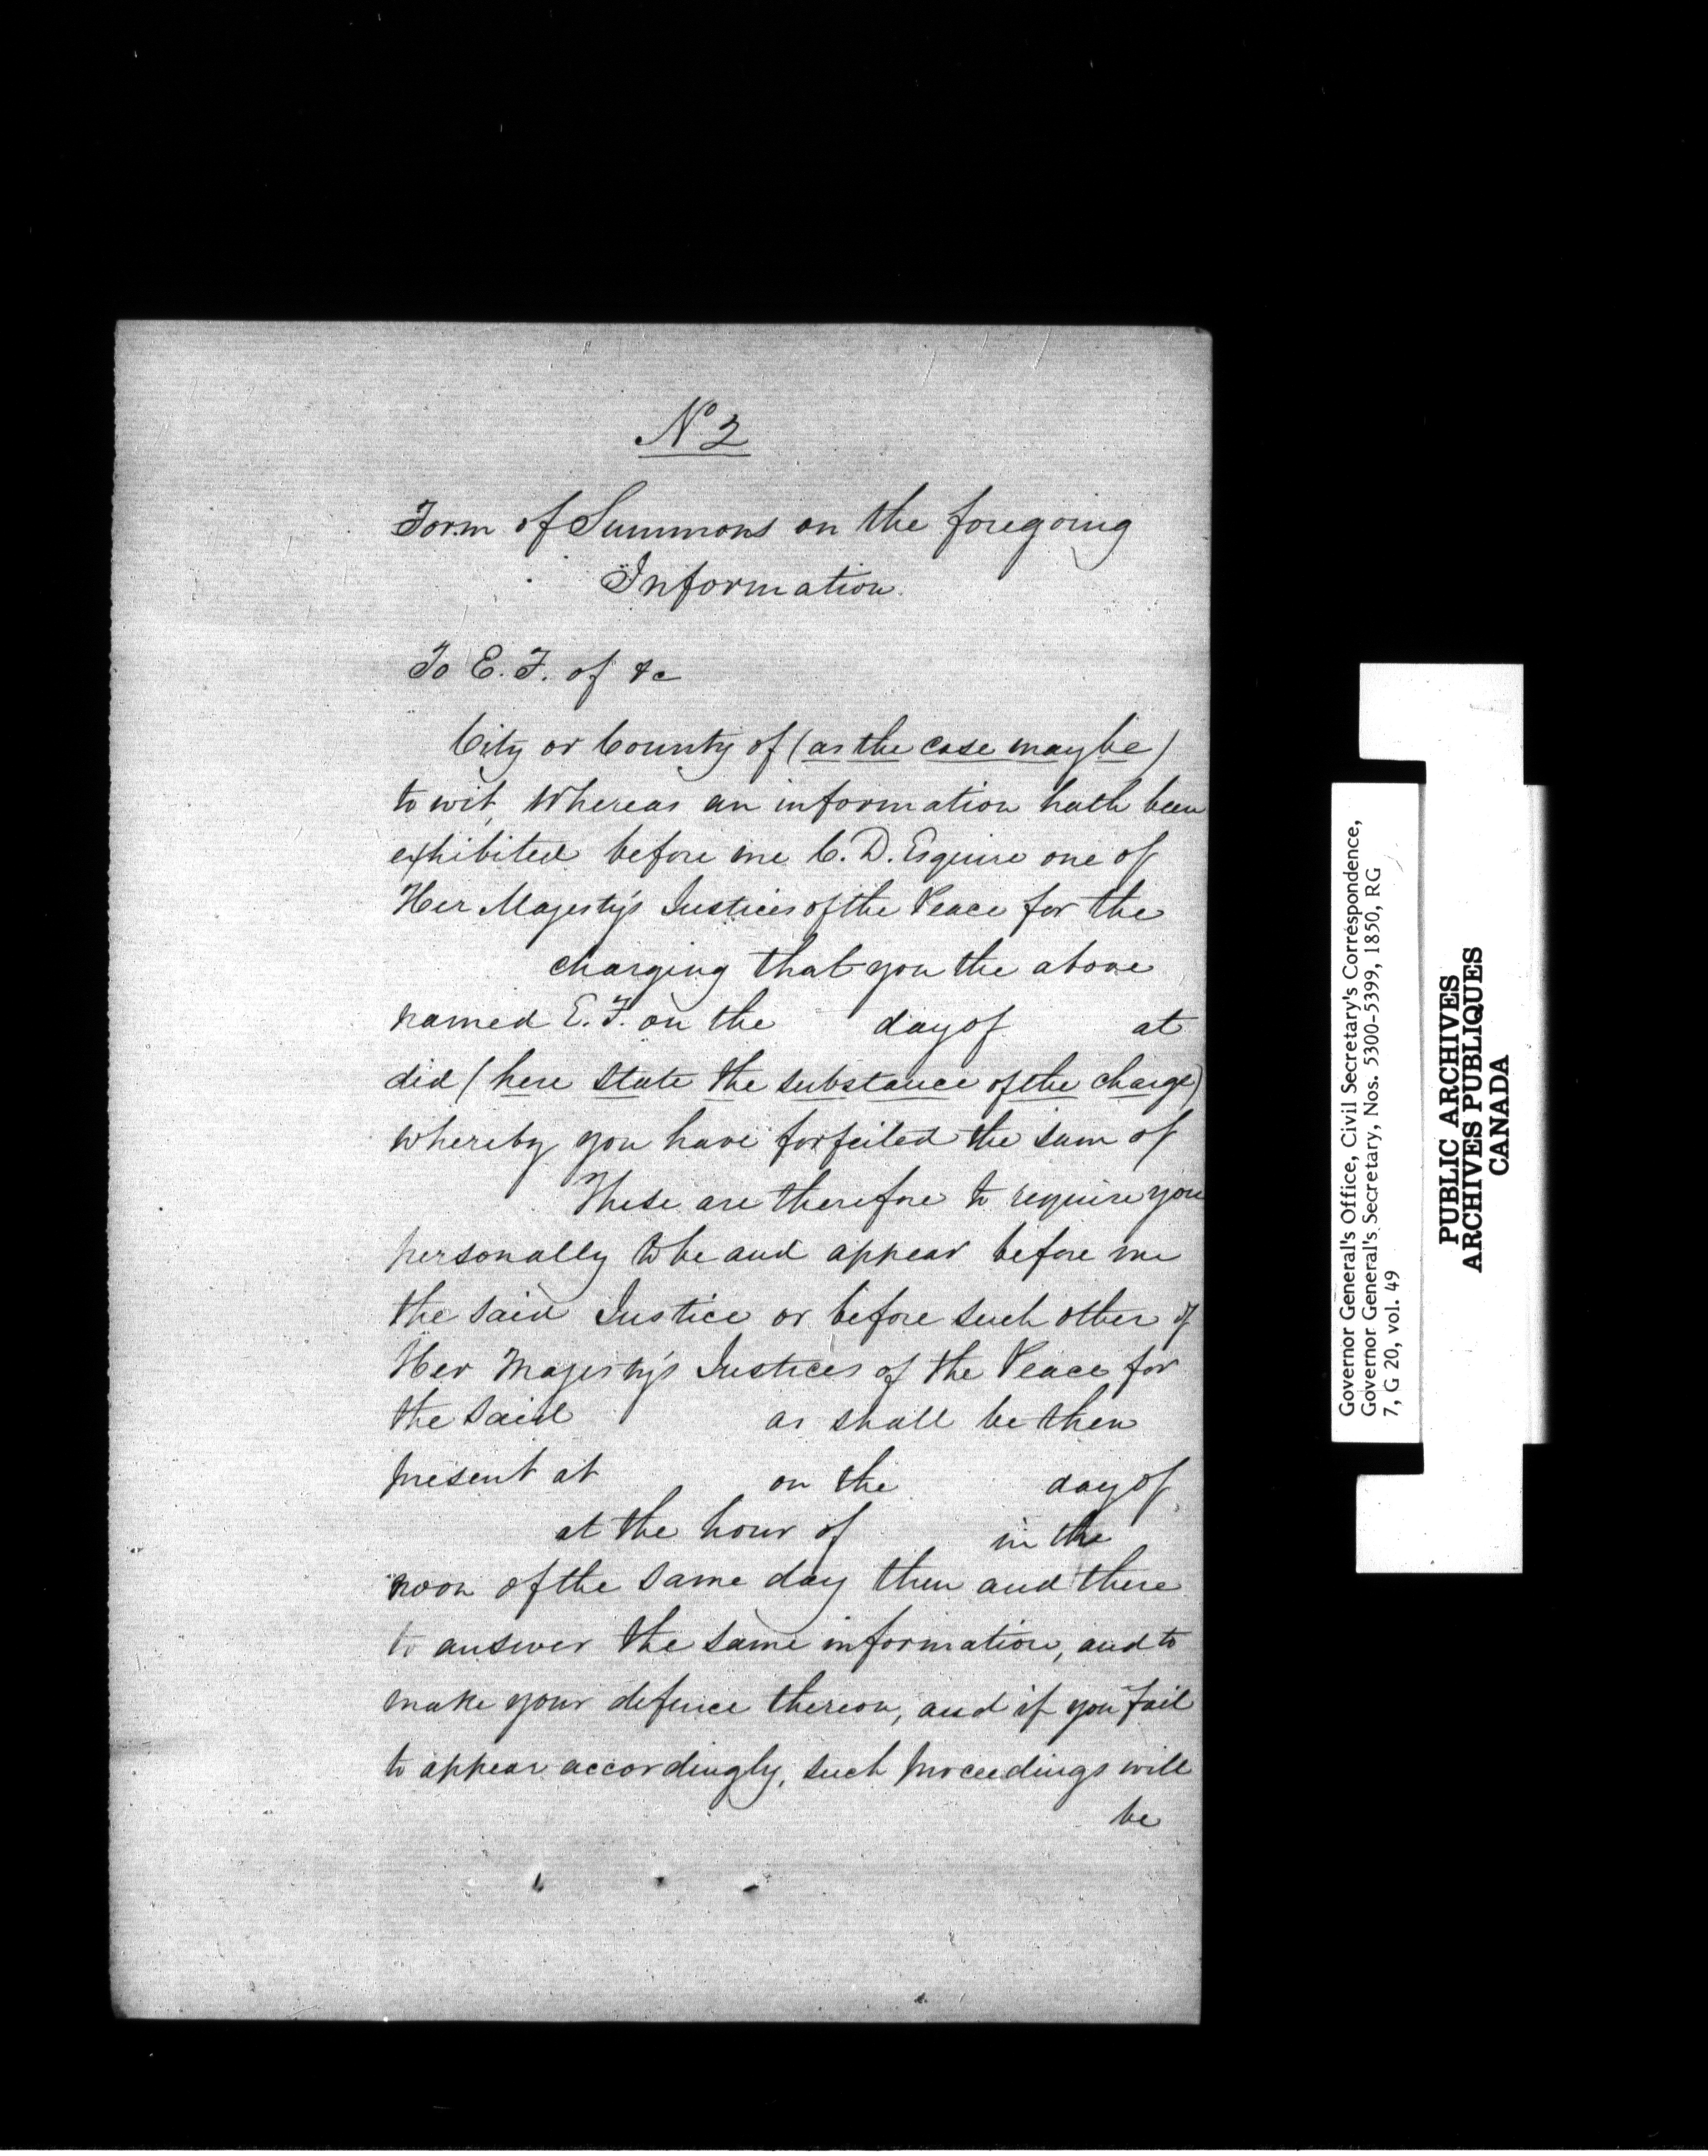 No 2
Form of Summons on the foregoing
Information.
To E. F. of &c
City or County of (as the case may be)
to wit, Whereas an information hath been
exhibited before me C. D. Esquire one of
Her Majesty's Justices of the Peace for the
charging that you the above
named E. F. on the day of at
did (here state the substance of the charge)
whereby you have forfeited the sum of
These are therefore to require you
personally to be and appear before me
the said Justice or before such other of
Her Majesty's Justices of the Peace for
the said as shall be then
present at on the day of
at the hour of in the
noon of the same day then and there
to answer the same information, and to
make your defence thereon, and if you fail
to appear accordingly, such proceedings will
be
Governor General's Office, Civil Secretary's Correspondence,
Governor General's Secretary, Nos. 5300-5399, 1850, RG
7, G 20, vol. 49
PUBLIC ARCHIVES
ARCHIVES PUBLIQUES
CANADA